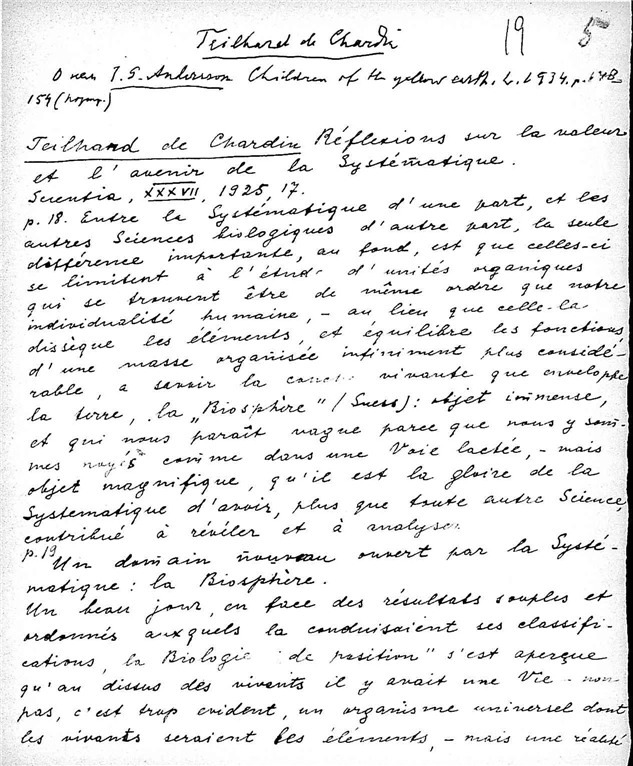 Teilhard de Chardin 19 5
О нем J. G. Andersson Children of the yellow earth. L. 1934. p. 148-
154 (портр.)
Teilhard de Chardin Réflexions sur la valeur
et l'avenir de la Systématique.
Scientia, XXXVII, 1925, 17.
p. 18. Entre la Systématique d'une part, et les
autres Sciences biologiques d'autre part, la seule
différence importante, au fond, est que celles-ci
se limitent à l'étude d'unités organiques
qui se trouvent être de même ordre que notre
individualité humaine, – au lieu que celle-là
dissèque les éléments, et équilibre les fonctions,
d'une masse organisée infiniment plus considé-
rable, a savoir la couche vivante que enveloppe
la terre, la „Biosphère" (Suess): objet immense,
et qui nous paraît vague parce que nous y som-
mes noyés comme dans une Voie lactée, – mais
objet magnifique, qu'il est la gloire de la
Systematique d'avoir, plus que toute autre Science,
contribué à révéler et à analyser.
p. 19
Un domain nouveau ouvert par la Systé-
matique: la Biosphère.
Un beau jour, en face des résultats souples et
ordonnés auxquels la conduisaient ses classifi-
cations, la Biologie de position" s'est aperçue
qu'au dissus des vivants il y avait une Vie – non
pas, c'est trop evident, un organisme universel dont
les vivants seraient les éléments, – mais une réalité